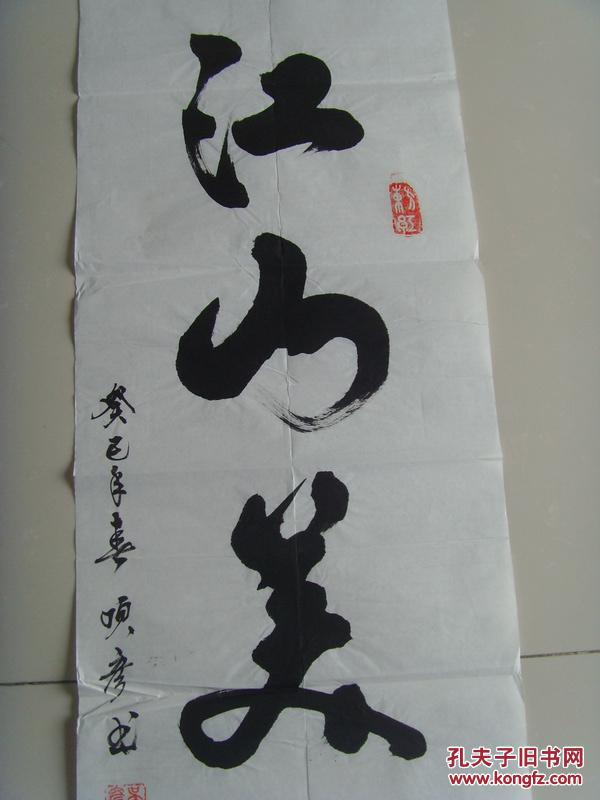 江山美
癸巳年春 顺彦书
孔夫子旧书网
www.kongfz.com